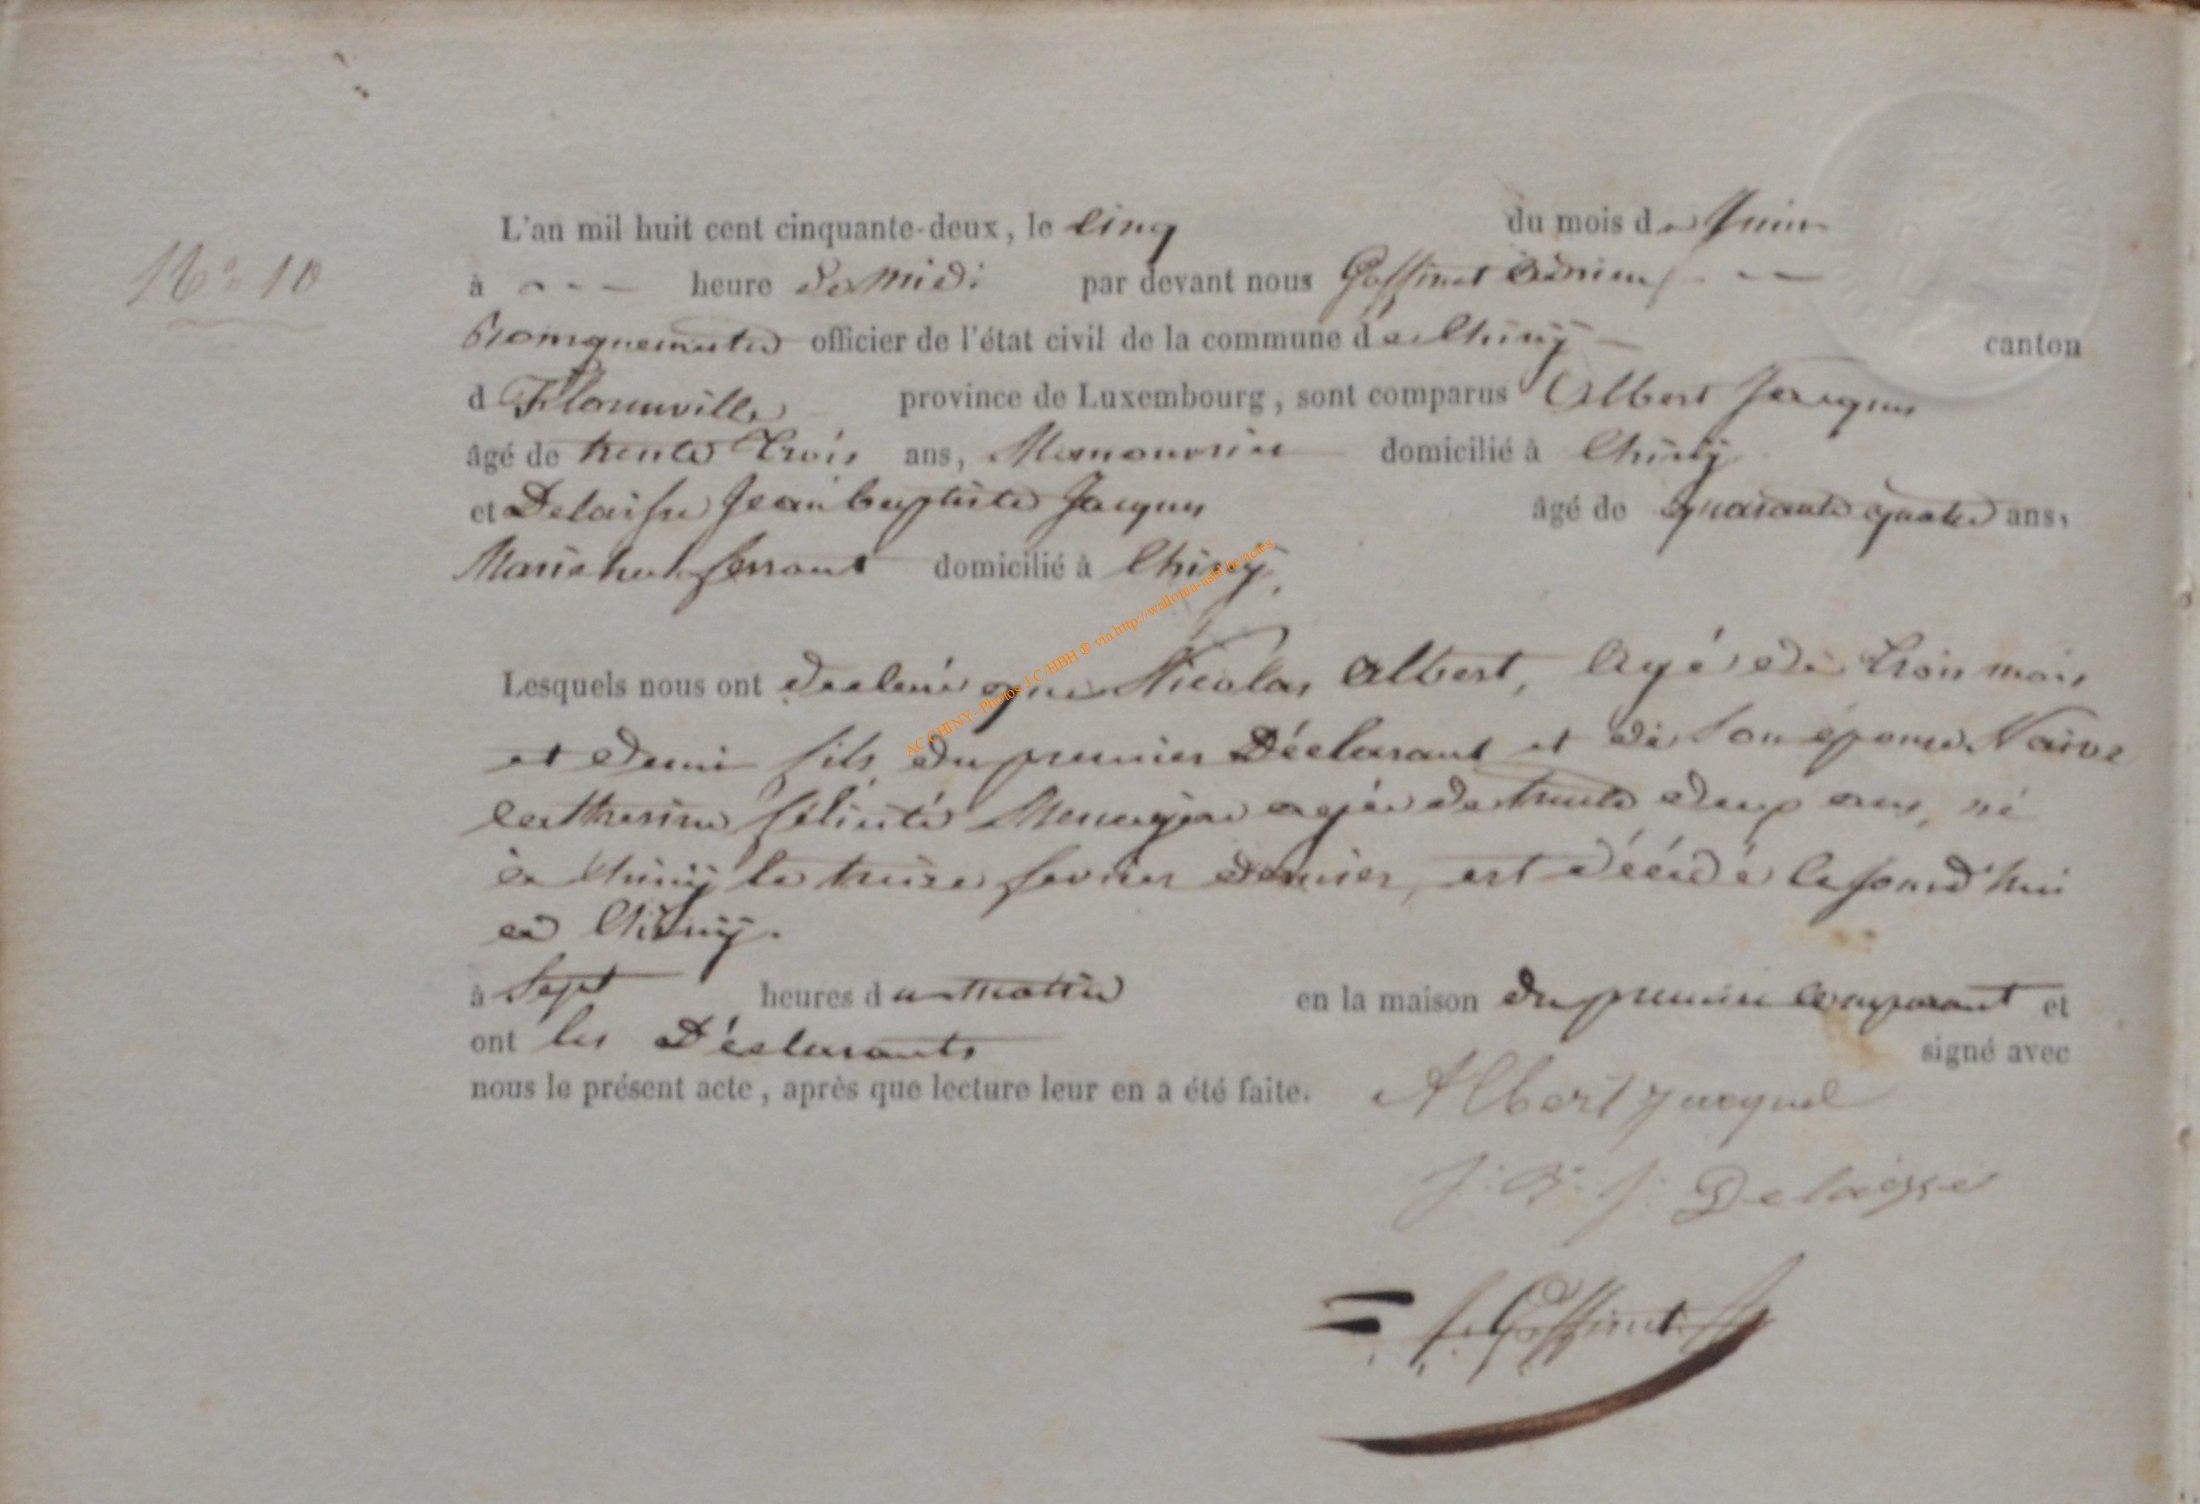 L'an mil huit cent cinquante-deux, le Cinq du mois de Juin
N° 10
à heure de Midi par devant nous Goffinet Adrien
Bourguemestre officier de l'état civil de la commune de Chiny canton
d Florenville province de Luxembourg, sont comparus Albert Jacques
âgé de trente trois ans, Manouvrier domicilié à Chiny
et Delaisse Jean baptiste Jacques âgé de quarante quatre ans,
Marechal ferrant domicilié à Chiny,
Lesquels nous ont declaré que Nicolas Albert, Agé de trois mois
et demi fils du premier Déclarant et de Son épouse Naive
Catherine félicité Menagère agée de trente deux ans, né
à Chiny le treize fevrier dernier, est décédé Cejourd'hui
à Chiny.
à Sept heures du matin en la maison du premier Comparant et
ont les Déclarants signé avec
nous le présent acte, après que lecture leur en a été faite.
Albert Jacque
J. B. J. Delaisse
Goffinet
AC CHINY - Photos J C HBH ® via http://wallonia-asbl.be/actes